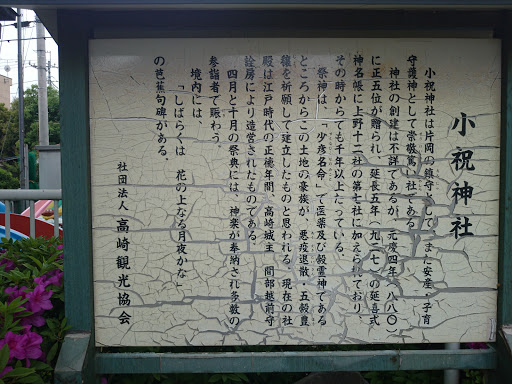 小祝神社
小祝神社は片岡の鎮守として、また安産・子育
守護神として崇敬篤い社である
神社の創建は不詳であるが、元慶四年(八八〇)
に正五位が贈られ、延長五年(九二七)の延喜式
神名帳に上野十二社の第七社に加えられており、
その時からでも千年以上たっている。
祭神は、「少彦名命」で医薬及び穀霊神である
ところからこの土地の豪族が、悪疫退散・五穀豊
穣を祈願して建立したものと思われる。現在の社
殿は江戸時代の正徳年間、高崎城主 間部越前守
詮房により造営されたものである。
四月と十月の祭典には、神楽が奉納され多数の
参詣者で賑わう。
境内には、
「しばらくは 花の上なる月夜かな」
の芭蕉句碑がある。
社団法人 高崎観光協会